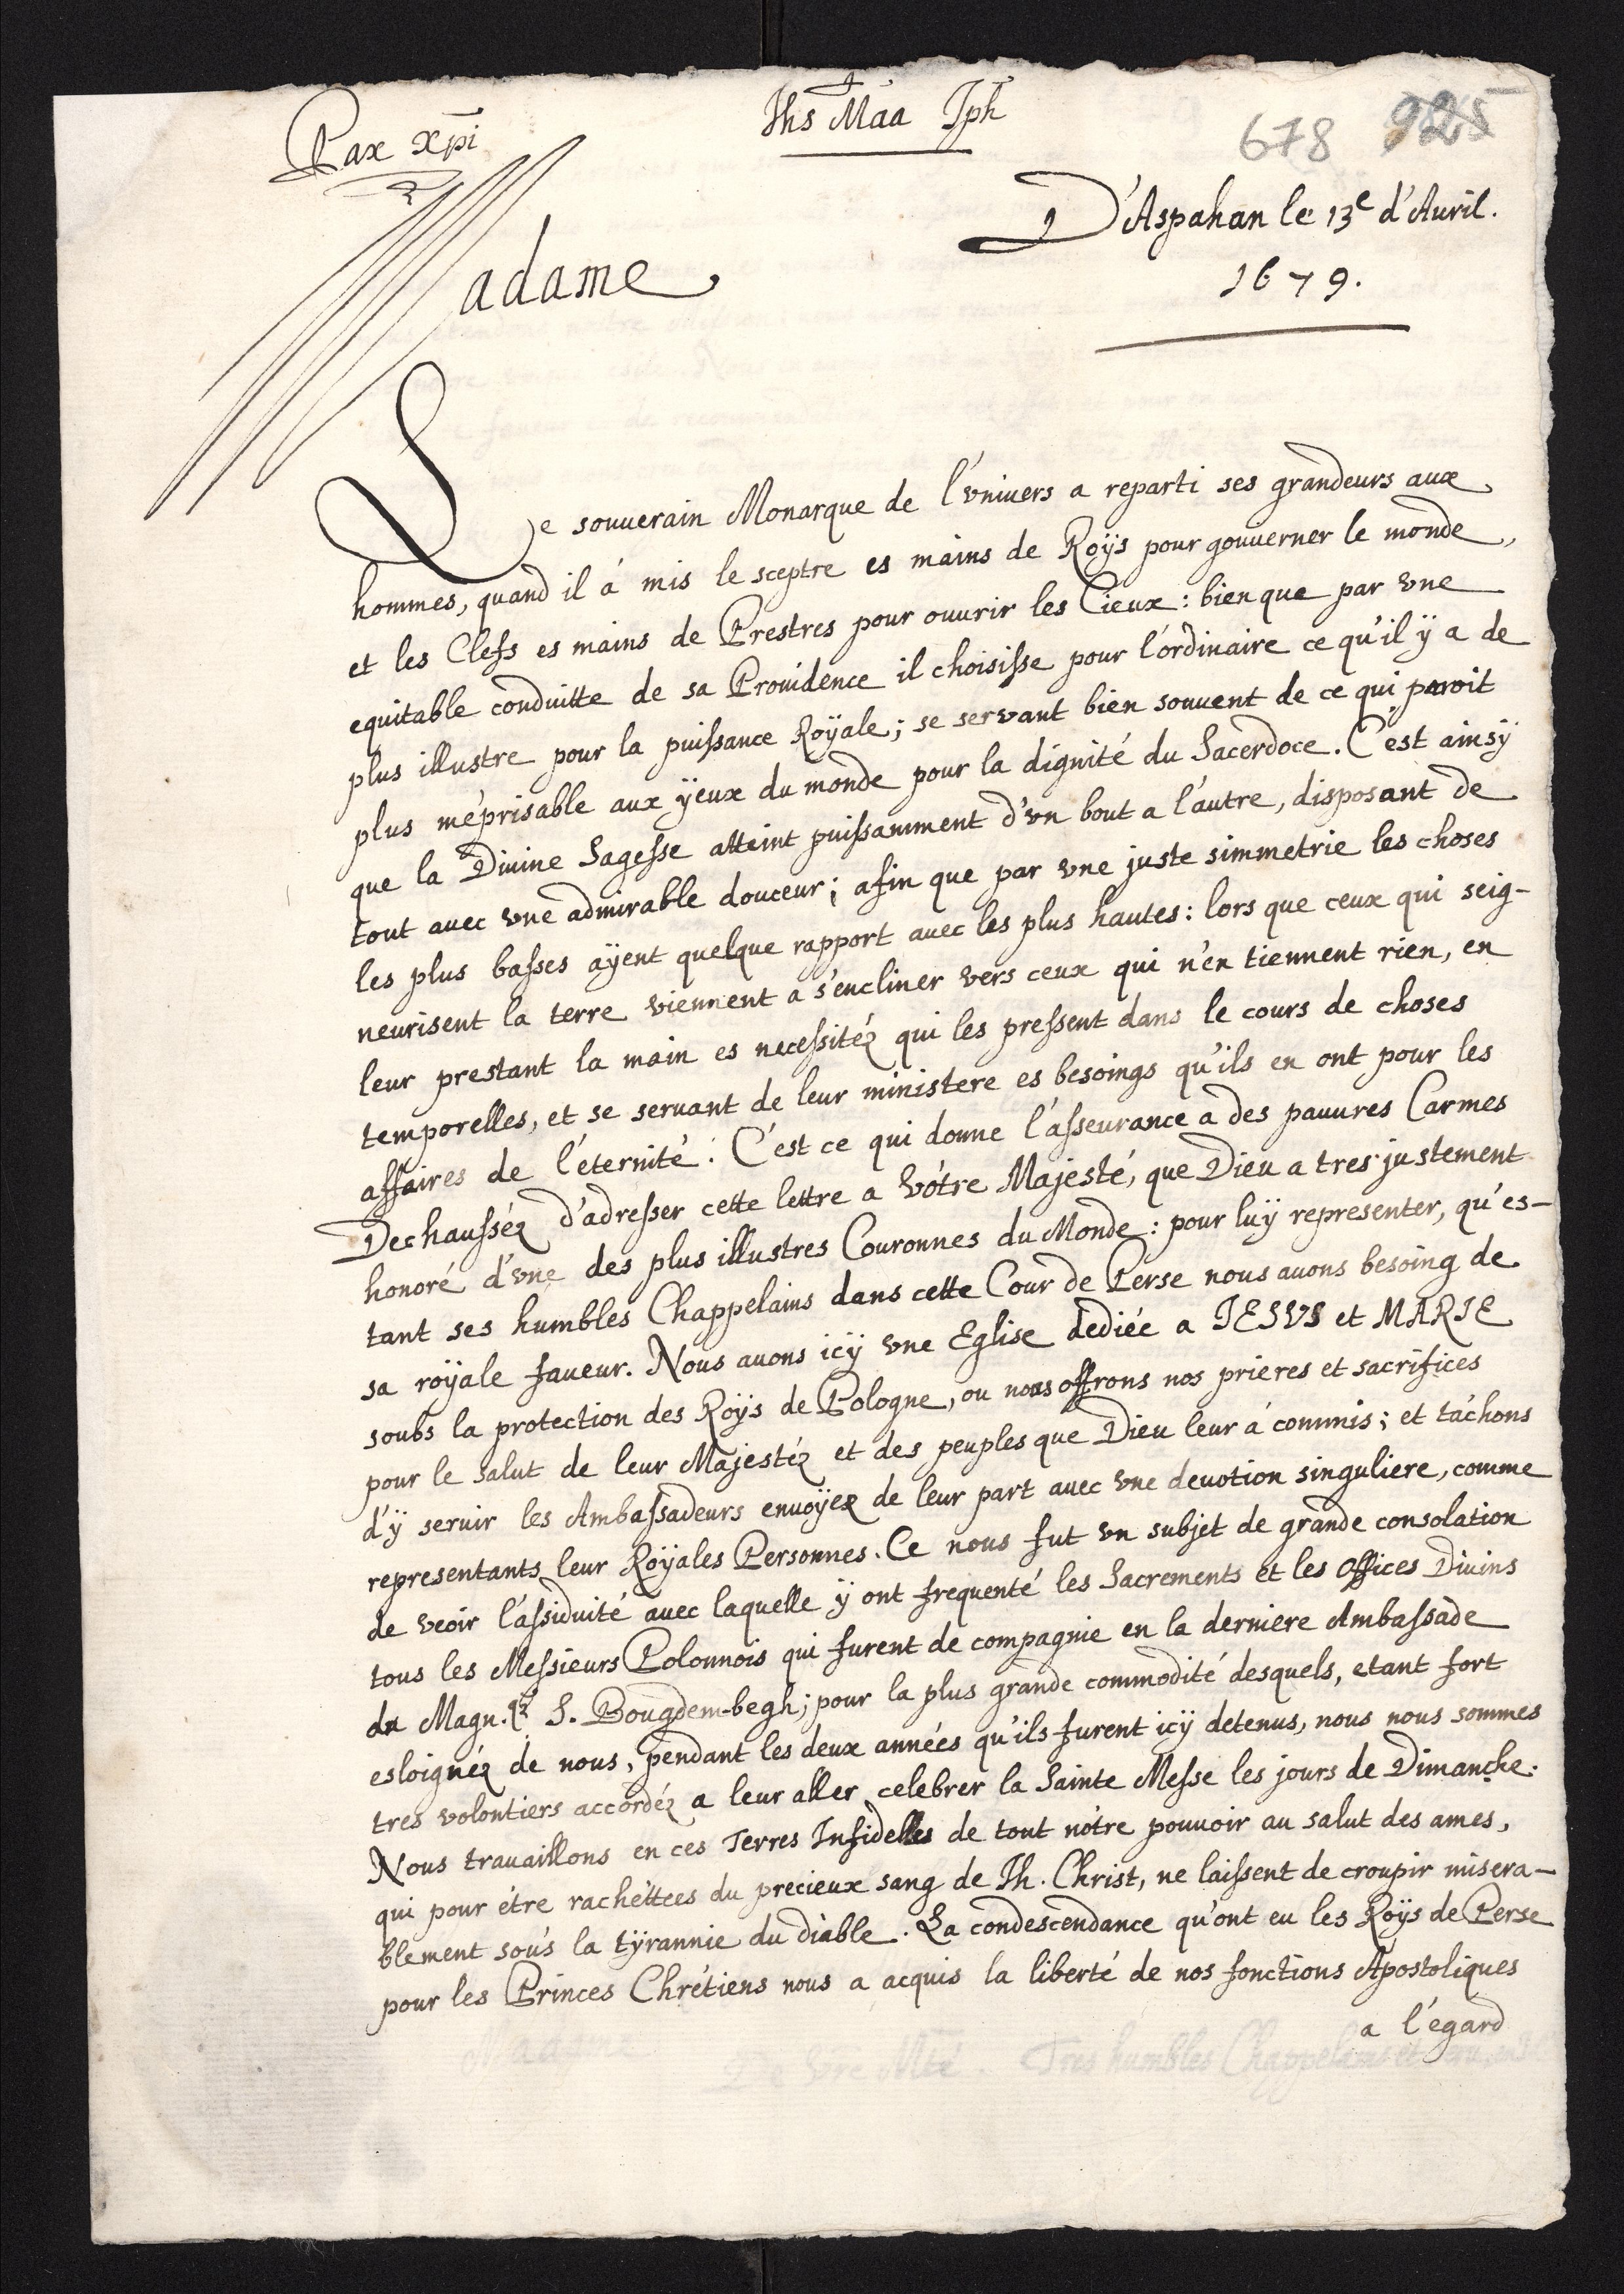 Ihs Maa Jph
Pax Xpi
678 925
D'Aspahan le 13e d'Auril.
1679.
Madame
Le souuerain Monarque de l'vniuers a reparti ses grandeurs aux
hommes, quand il á mis le sceptre es mains de Roÿs pour gouuerner le monde,
et les Clefs es mains de Prestres pour ouurir les Cieux : bien que par vne
equitable conduitte de sa Prouidence il choisisse pour l'ordinaire ce qu'il ÿ a de
plus illustre pour la puissance Roÿale ; se servant bien souuent de ce qui paroit
plus méprisable aux ÿeux du monde pour la dignité du Sacerdoce. C'est ainsÿ
que la Diuine Sagesse atteint puissamment d'vn bout a l'autre, disposant de
tout auec vne admirable douceur ; afin que par vne juste simmetrie les choses
les plus basses aÿent quelque rapport auec les plus hautes : lors que ceux qui seig-
neurisent la terre viennent a s'encliner vers ceux qui n'en tiennent rien, en
leur prestant la main es necessitéz qui les pressent dans le cours de choses
temporelles, et se seruant de leur ministere es besoings qu'ils en ont pour les
affaires de l'éternité. C'est ce qui donne l'asseurance a des pauures Carmes
Dechausséz d'adresser cette lettre a Vótre Majesté, que Dieu a tres justement
honoré d'vne des plus illustres Couronnes du Monde : pour luÿ representer, qu'es-
tant ses humbles Chappelains dans cette Cour de Perse nous auons besoing de
sa roÿale faueur. Nous auons icÿ vne Eglise dediée a JESVS et MARIE
soubs la protection des Roÿs de Pologne, ou nous offrons nos prieres et sacrifices
pour le salut de leur Majestéz et des peuples que Dieu leur á commis ; et táchons
d'ÿ seruir les Ambassadeurs enuoÿez de leur part auec vne deuotion singuliere, comme
representants leur Roÿales Personnes. Ce nous fut vn subjet de grande consolation
de veoir l'assiduité auec laquelle ÿ ont frequenté les Sacrements et les Offices Diuins
tous les Messieurs Polonnois qui furent de compagnie en la derniere Ambassade
du Magn. S. Bougdem-begh ; pour la plus grande commodité desquels, etant fort
esloignéz de nous, pendant les deux années qu'ils furent icÿ detenus, nous nous sommes
tres volontiers accordéz a leur aller celebrer la Sainte Messe les jours de Dimanche.
Nous trauaillons en ces Terres Infidelles de tout nótre pouuoir au salut des ames,
qui pour étre rachéttees du precieux sang de Jh. Christ, ne laissent de croupir misera-
blement sous la tÿrannie du diable. La condescendance qu'ont eu les Roÿs de Perse
pour les Princes Chrétiens nous a acquis la liberté de nos fonctions Apostoliques
a l'égard